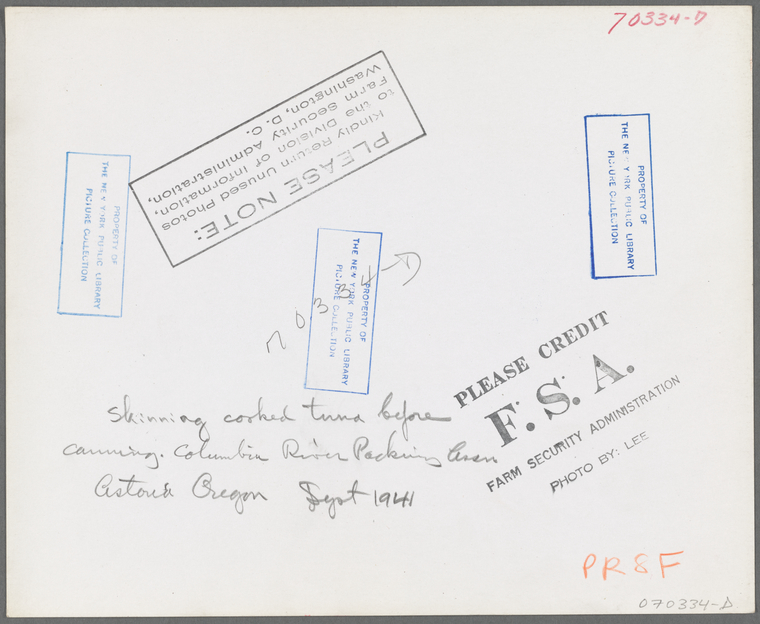 70334-D
PLEASE NOTE:
Kindly Return Unused Photos
to the Division of Information,
Farm Security Administration,
Washington, D. C.
PROPERTY OF
THE NEW YORK PUBLIC LIBRARY
PICTURE COLLECTION
PROPERTY OF
THE NEW YORK PUBLIC LIBRARY
PICTURE COLLECTION
PROPERTY OF
THE NEW YORK PUBLIC LIBRARY
PICTURE COLLECTION
70334-D
PLEASE CREDIT
F. S. A.
FARM SECURITY ADMINISTRATION
PHOTO BY: LEE
Skinning cooked tuna before
canning. Columbia River Packing Assn
Astoria Oregon Sept 1941
PRSF
070334-D